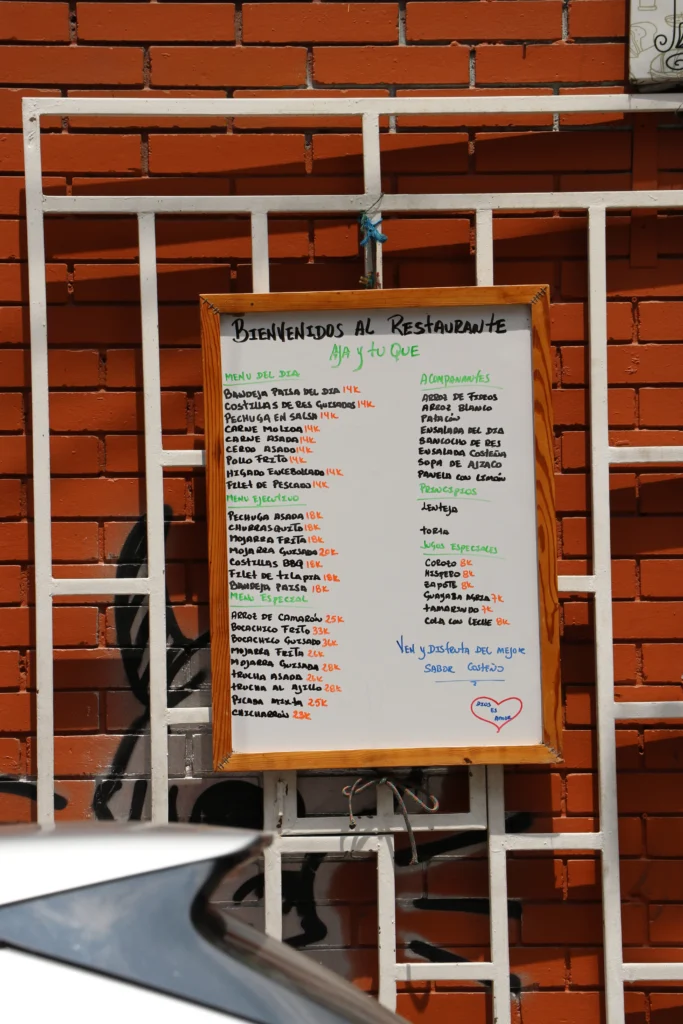 BIENVENIDOS AL RESTAURANTE
AJA Y TU QUE
MENU DEL DIA
BANDEJA PAISA DEL DIA 14K
COSTILLAS DE RES GUISADOS 14K
PECHUGA EN SALSA 14K
CARNE MOLIDA 14K
CARNE ASADA 14K
CERDO ASADO 14K
POLLO FRITO 14K
HIGADO ENCEBOLLADO 14K
FILET DE PESCADO 14K
MENU EJECUTIVO
PECHUGA ASADA 18K
CHURRASQUITO 18K
MOJARRA FRITA 18K
MOJARRA GUISADA 20K
COSTILLAS BBQ 18K
FILET DE TILAPIA 18K
BANDEJA PAISA 18K
MENU ESPECIAL
ARROZ DE CAMARÓN 25K
BOCACHICO FRITO 33K
BOCACHICO GUISADO 36K
MOJARRA FRITA 26K
MOJARRA GUISADA 28K
TRUCHA ASADA 26K
TRUCHA AL AJILLO 28K
PICADA MIXTA 25K
CHICHARRÓN 23K
ACOMPAÑANTES
ARROZ DE FIDEOS
ARROZ BLANCO
PATACÓN
ENSALADA DEL DIA
SANCOCHO DE RES
ENSALADA COSTEÑA
SOPA DE AJIACO
PANELA CON LIMÓN
PRINCIPIOS
LENTEJA
JUGOS ESPECIALES
COROZO 8K
NISPERO 8K
ZAPOTE 8K
GUAYABA AGRIA 7K
TAMARINDO 7K
COLA CON LECHE 8K
VEN Y DISFRUTA DEL MEJOR
SABOR COSTEÑO
DIOS
ES
AMOR